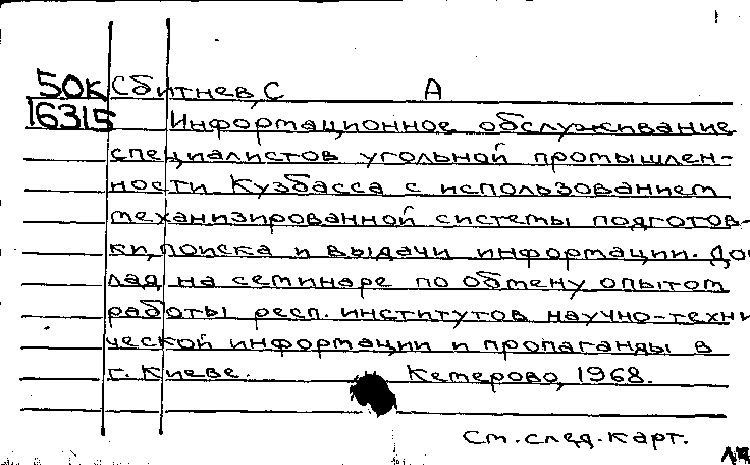 50К Сбитнев, С А
16315 Информационное обслуживание
специалистов угольной промышлен-
ности Кузбасса с использованием
механизированной системы подготов-
ки, поиска и выдачи информации. До
лад на семинаре по обмену опытом
работы респ. институтов научно-техни
ческой информации и пропаганды в
г. Киеве. Кемерово, 1968.
См. след. карт.